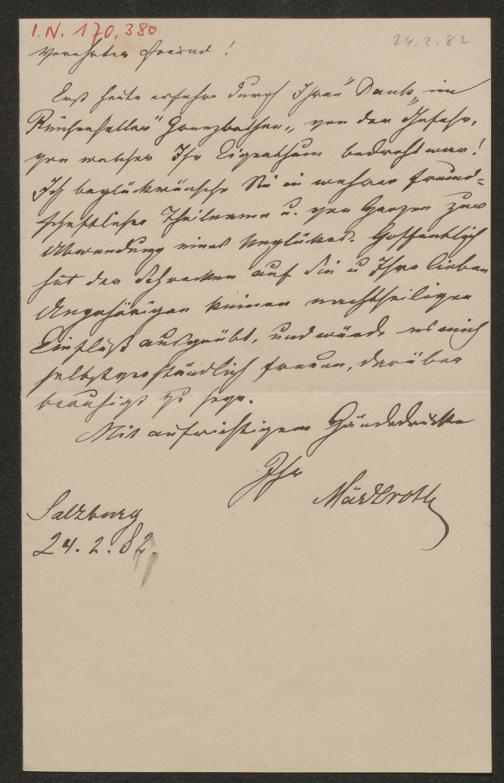 I.N. 170.380
24.2.82
Verehrter Freund!
Erst heute erfahre durch Ihren "Dank" im
" von der Gefahr,
von welcher Ihr Eigenthum bedroht war!
Ich beglückwünsche Sie in wahrer freund=
schaftlicher Theilname u. von Herzen zur
Abwendung eines Unglückes. Hoffentlich
hat der Schrecken auf Sie u Ihre lieben
Angehörigen keinen nachtheiligen
Einfluß ausgeübt, und würde es mich
selbstverständlich freuen, darüber
beruhigt zu sein.
Mit aufrichtigem Händedrucke
Ihr
Märzroth
Salzburg
24.2.82